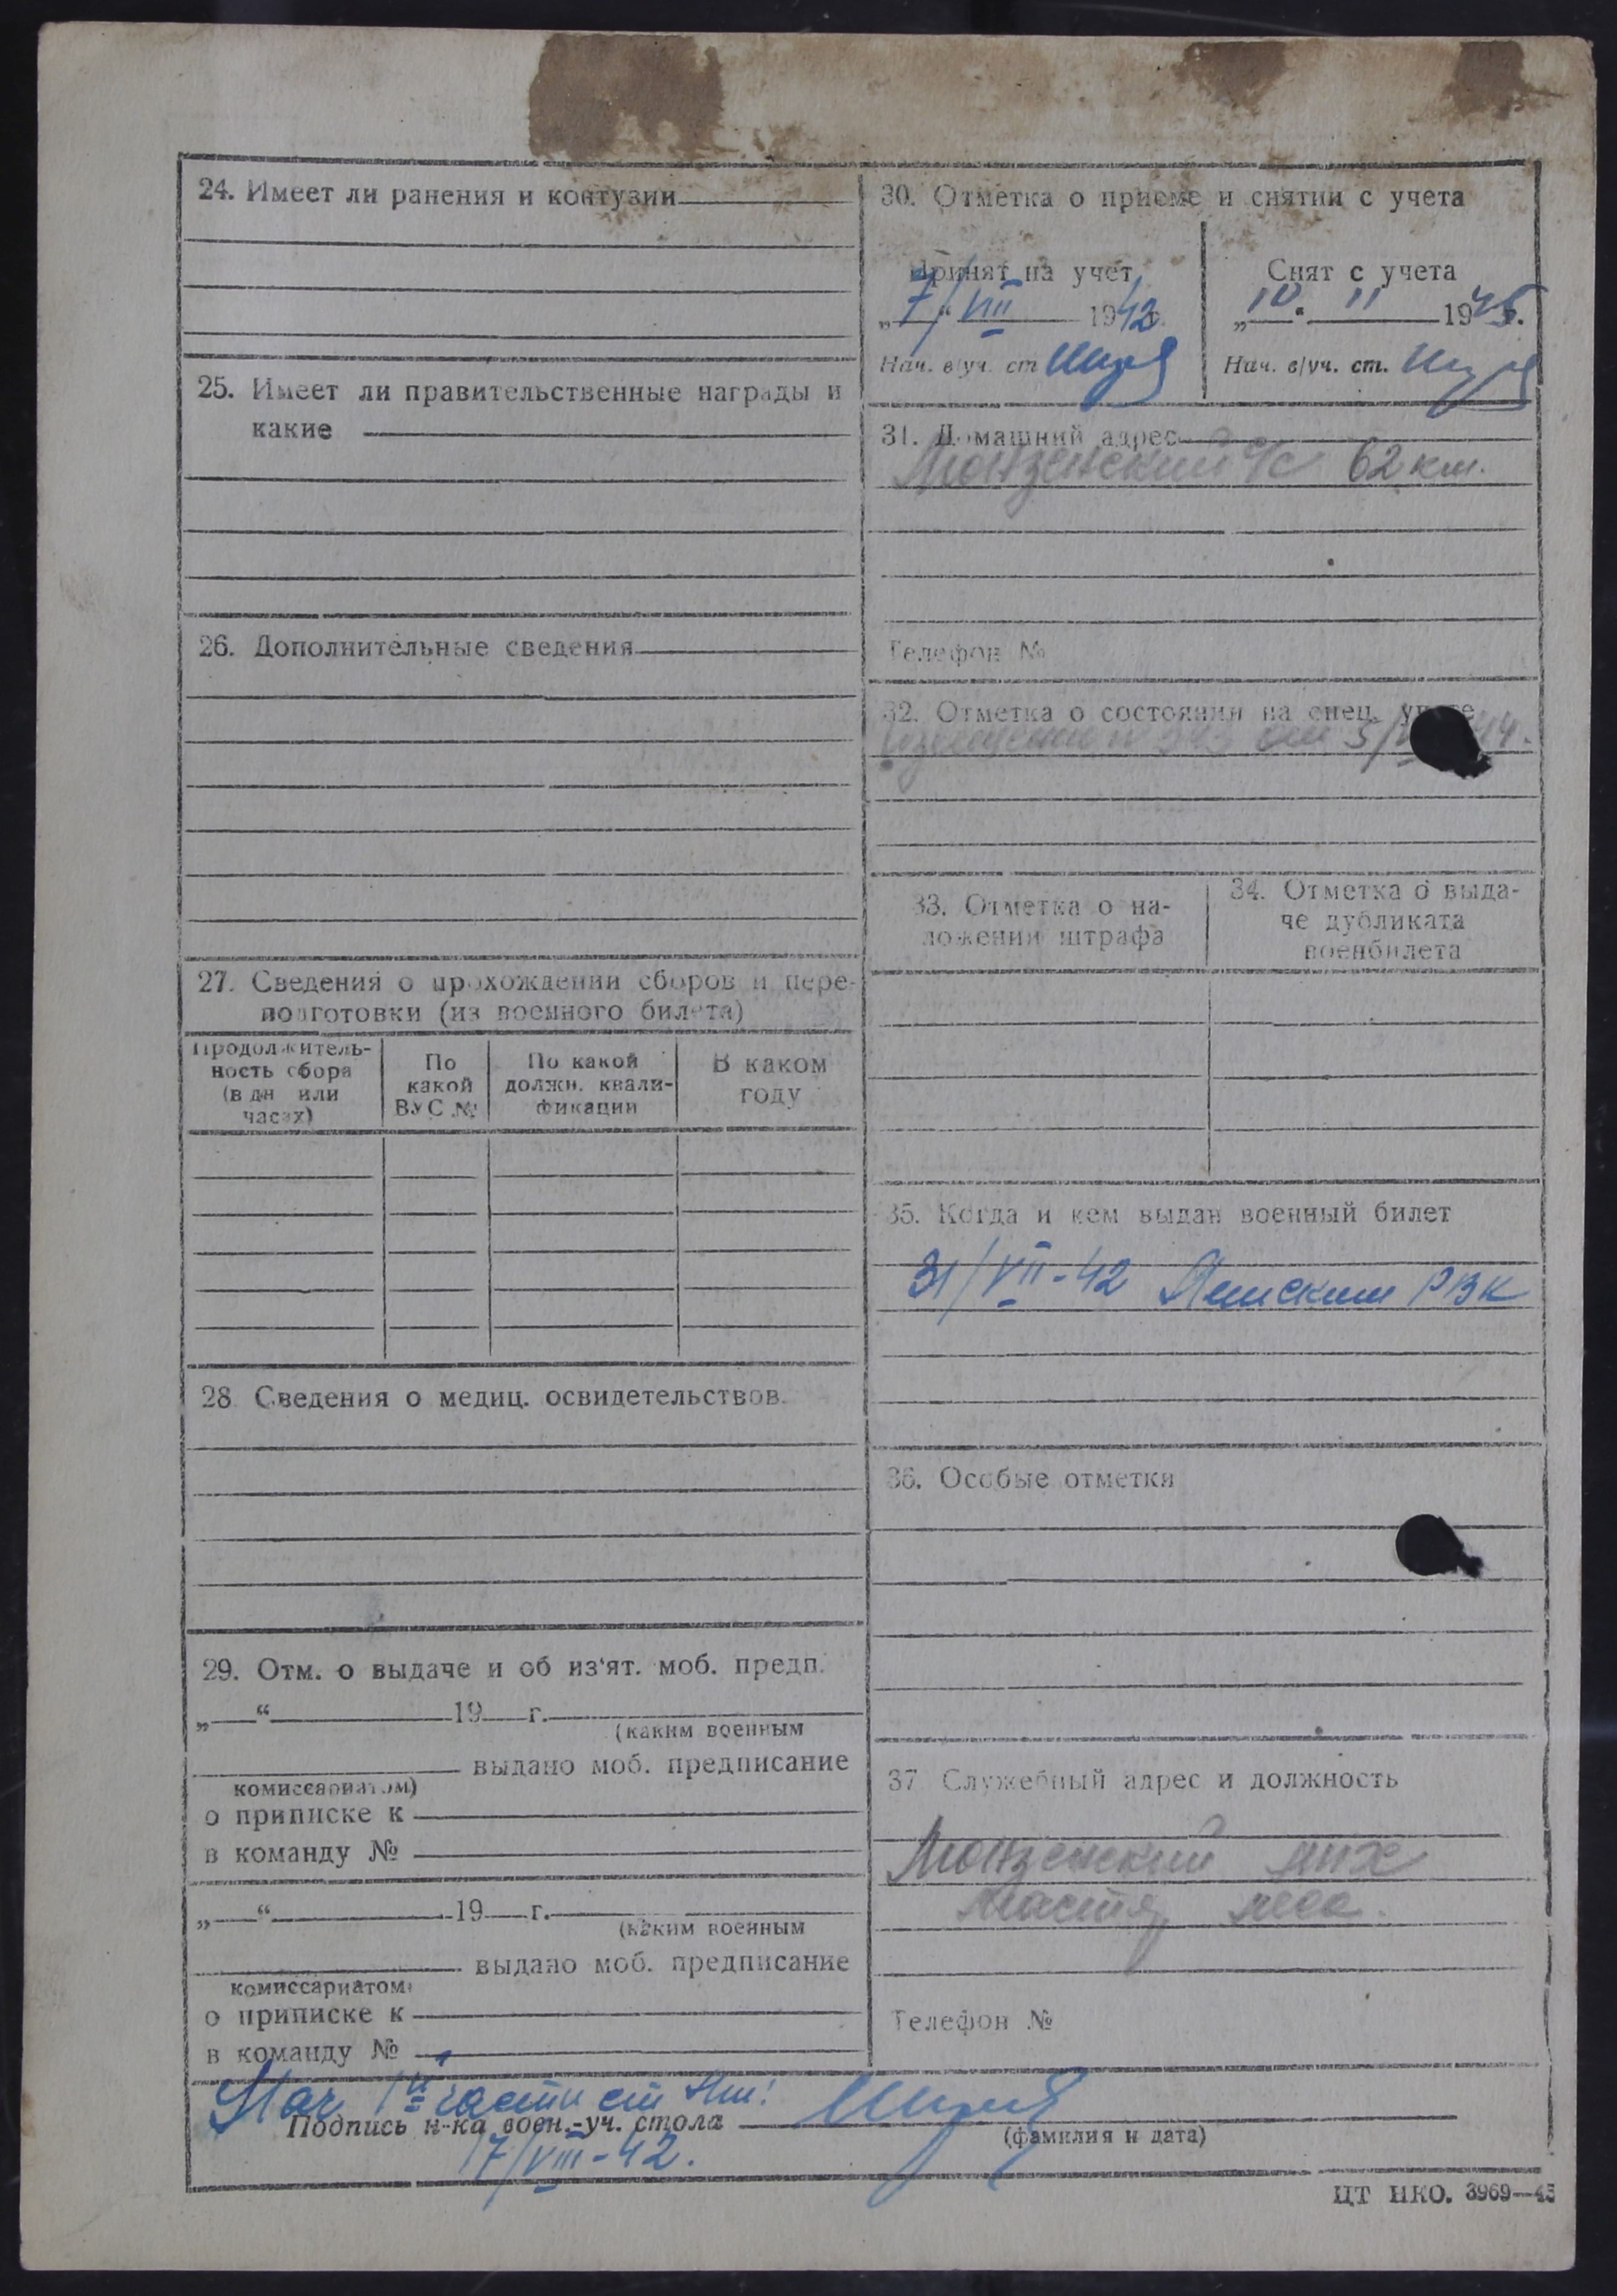 24. Имеет ли ранения и контузии
25. Имеет ли правительственные награды и
какие
26. Дополнительные сведения
27. Сведения о прохождении сборов и пере-
подготовки (из военного билета)
Продолжитель-
ность сбора
(в дн или
часах)
По
какой
ВУС №
По какой
должн. квали-
фикации
В каком
году
28 Сведения о медиц. освидетельствов.
29. Отм. о выдаче и об из‘ят. моб. предп.
„ “ 19 г.
(каким военным
выдано моб. предписание
комиссариатом)
о приписке к
в команду №
„ “ 19 г.
(каким военным
выдано моб. предписание
комиссариатом
о приписке к
в команду №
30. Отметка о приеме и снятии с учета
Принят на учет
„7/“ VIII 1942 г.
Нач. в/уч. ст
Снят с учета
„10“ 11 1945.
Нач. в/уч. ст.
31. Домашний адрес
Монзенский с/с 62 км.
Телефон №
32. Отметка о состоянии на спец. учете
44.
33. Отметка о на-
ложении штрафа
34. Отметка о выда-
че дубликата
военбилета
35. Когда и кем выдан военный билет
31/VII-42 РВК
36. Особые отметки
37 Служебный адрес и должность
Монзенский
леса.
Телефон №
Нач части
Подпись н-ка воен.-уч. стола
(фамилия и дата)
7/VIII-42.
ЦТ НКО. 3969—45